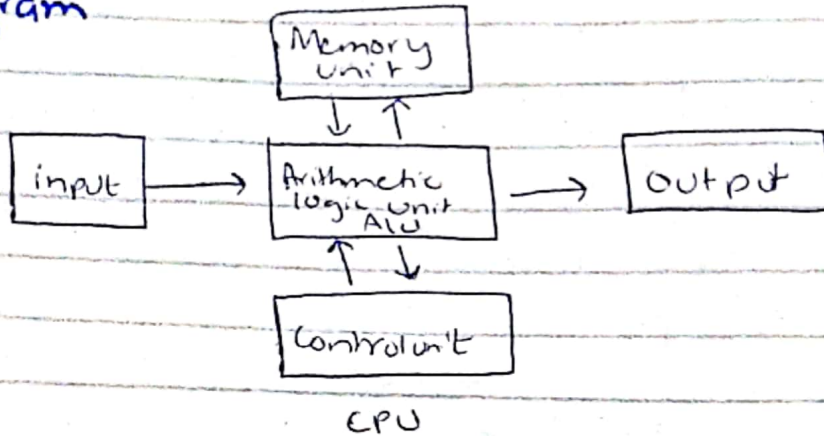 Memory
unit
input
Arithmetic
logic unit
ALU
output
Control unit
CPU